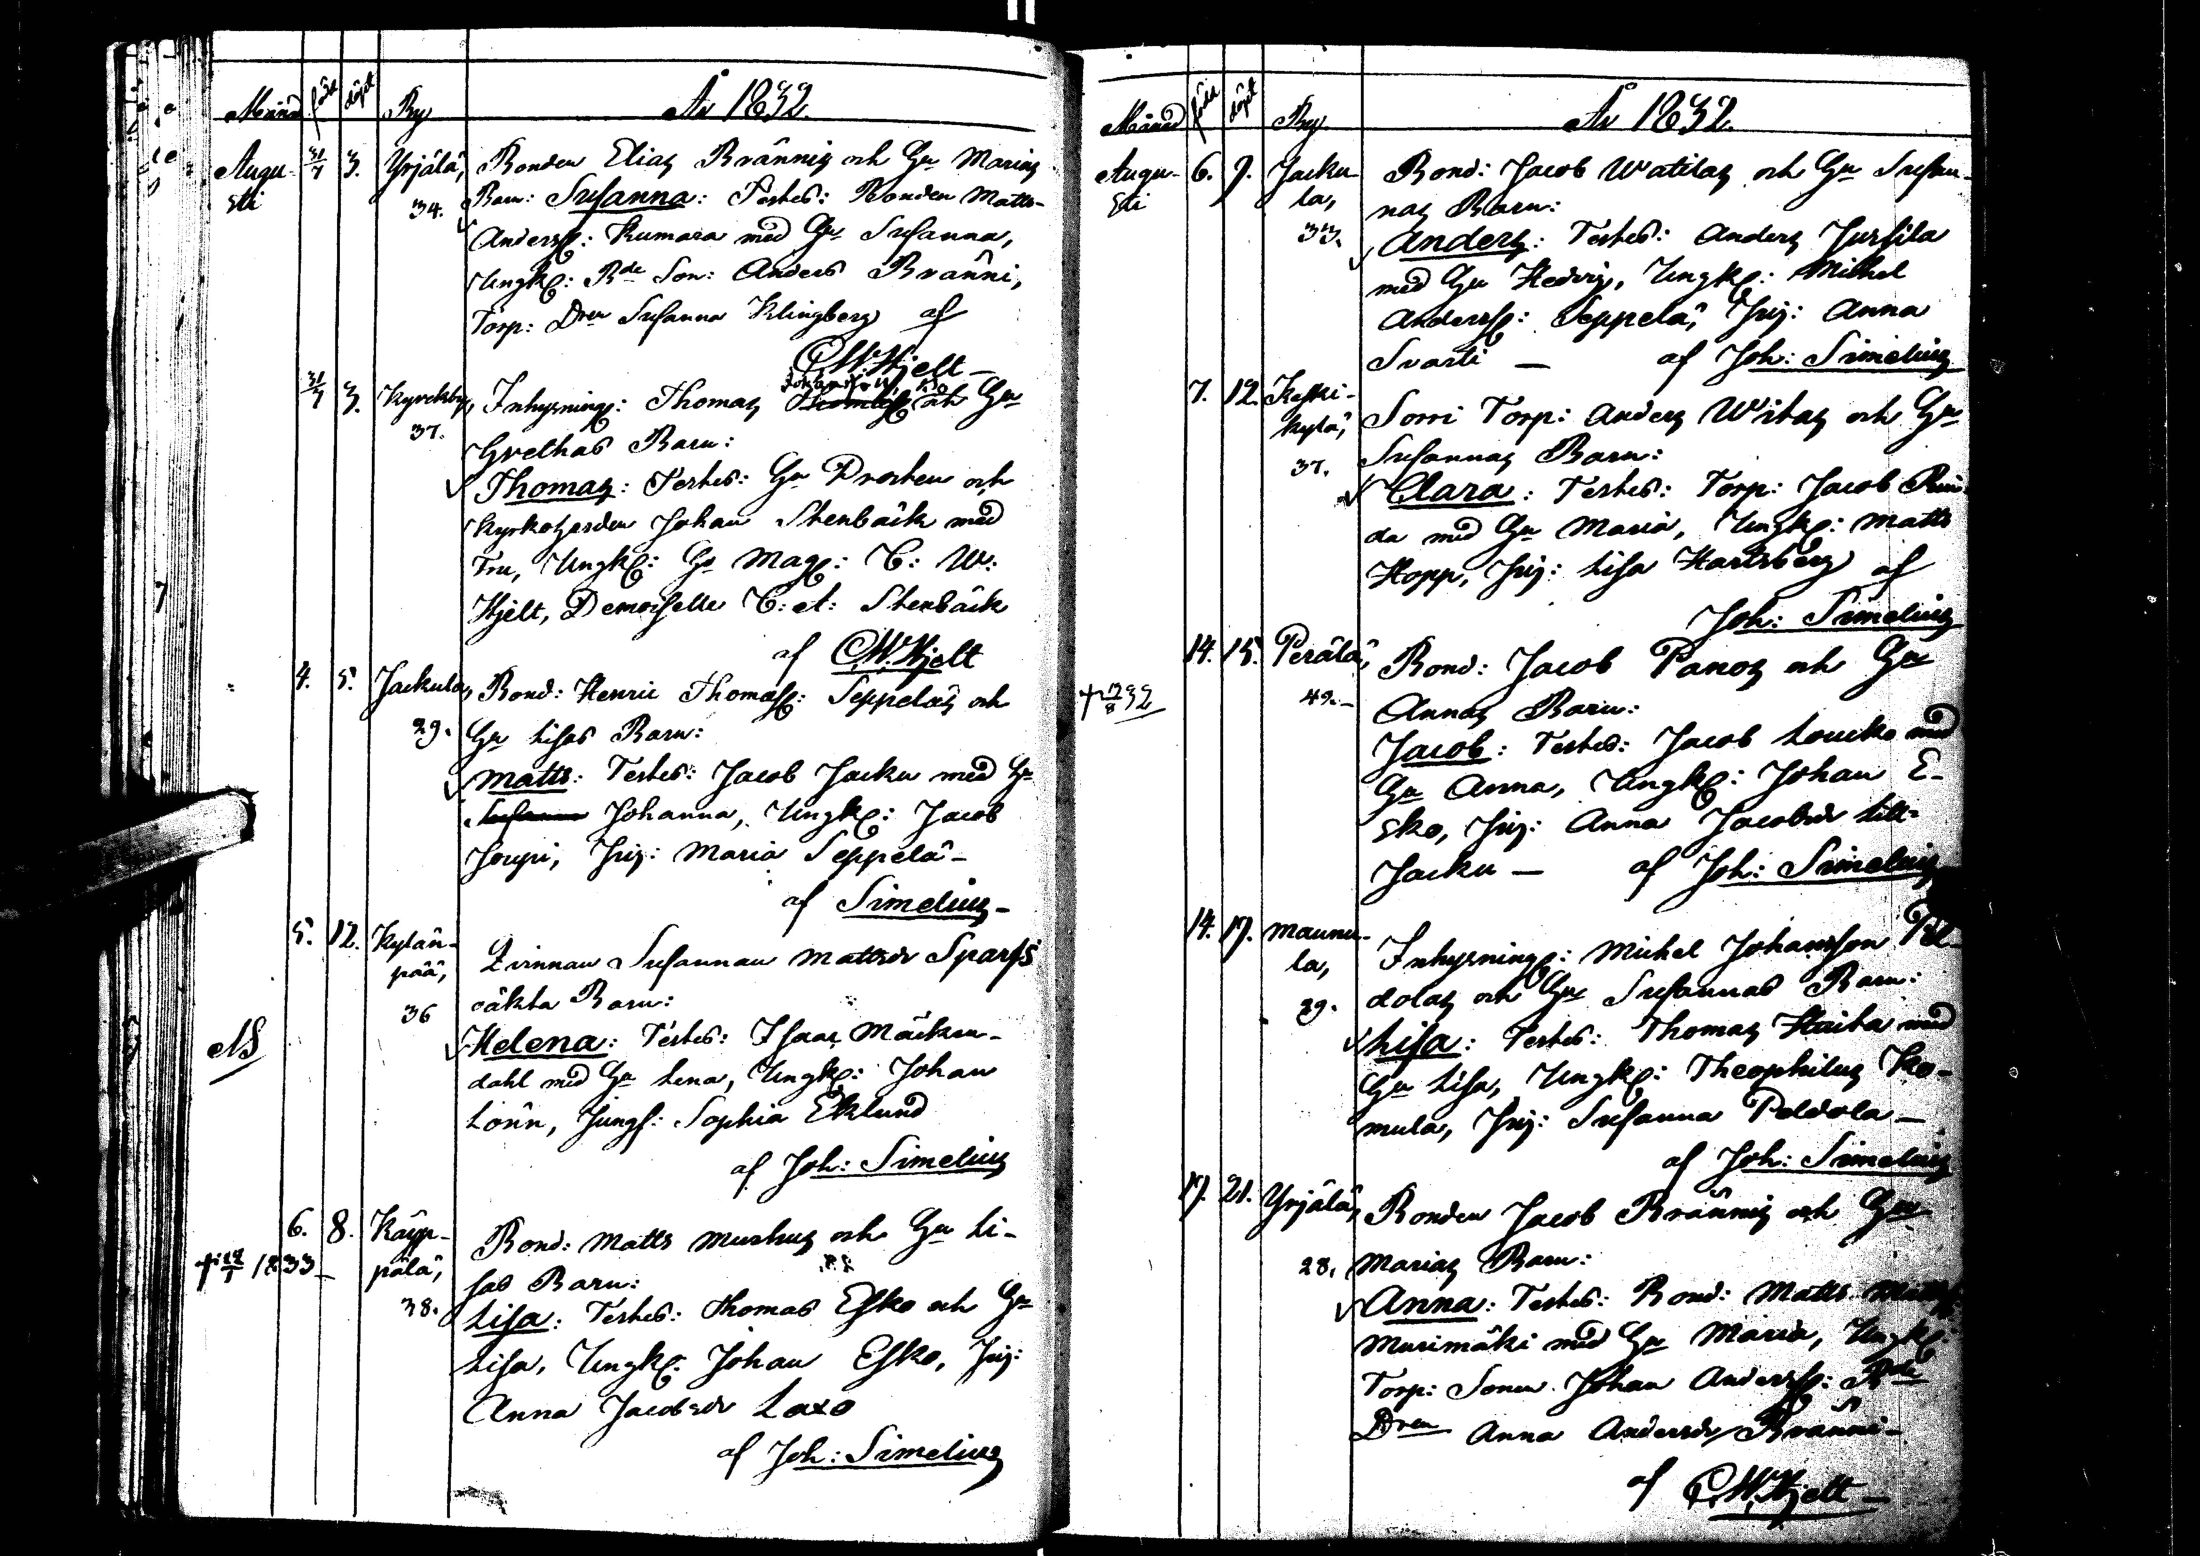 Månad född döpt By År 1832.
Augu- 31/7 3. Yrjälä, Bonden Elias Brännis och Hu Marias
sti 34. Barn: Susanna: Testes: Bonden Matts
Anderss: Kumara med Hu Susanna,
Ungk: Bde Son: Anders Bränni,
Torp: Dren Susanna Klingberg af
C.W. Hjelt
31/7 3. Kyrckby, Inhysning: Thomas och Hu
37. Grethas Barn:
Thomas: Testes: Hr Prosten och
Kyrkoherden Johan Stenbäck med
Fru, Ungk: Hr Mag: C: W:
Hjelt, Demoiselle C: A: Stenbäck
af C.W. Hjelt
4. 5. Jackula, Bond: Henric Thomass: Seppeläs och
29. Hu Lisas Barn:
Matts: Testes: Jacob Jacku med Hu
Susanna Johanna, Ungk: Jacob
Joupi, Pig: Maria Seppelä
af Simelius
5. 12. Kylän- Qvinnan Susannan Mattsdr Sparfs
pää, oäkta Barn:
36
NB Helena: Testes: Isaac Mäcken-
dahl med Hu Lena, Ungk: Johan
Lönn, Jungf: Sophia Eklund
af Joh: Simelius
6. 8. Käyp- Bond: Matts Murhus och Hu Li-
† 1833 pälä, sas Barn:
38. Lisa: Testes: Thomas Esko och Hu
Lisa, Ungk: Johan Esko, Pig:
Anna Jacobsdr Laxo
af Joh: Simelius
Månad född döpt By År 1832.
Augu- 6. 9. Jacku- Bond: Jacob Watilas och Hu Susan-
sti la, nas Barn:
33. Anders: Testes: Anders Jussila
med Hu Hedvig, Ungk: Michel
Anderss: Seppelä, Pig: Anna
Svarti — af Joh: Simelius
7. 12. Keski- Sorri Torp: Anders Witas och Hu
kylä, Susannas Barn:
37. Clara: Testes: Torp: Jacob
da med Hu Maria, Ungk: Matts
Hopp, Pig: Lisa Hartsberg af
Joh: Simelius
14. 15. Perälä, Bond: Jacob Panos och Hu
† 32 49. Annas Barn:
Jacob: Testes: Jacob Loucko med
Hu Anna, Ungk: Johan E-
sko, Pig: Anna Jacobsdr Lill-
Jacku — af Joh: Simelius
14. 17. Maunu- Inhysning: Michel Johansson Pel-
la, dolas och Hu Susannas Barn:
29. Lisa: Testes: Thomas Haita med
Hu Lisa, Ungk: Theophilus Ko-
mula, Pig: Susanna Peldola —
af Joh: Simelius
17. 21. Yrjälä, Bonden Jacob Brännis och Hu
28. Marias Barn:
Anna: Testes: Bond: Matts Mattss:
Murimäki med Hu Maria, Ungk:
Torp: Sonen Johan Anderss: Bde
Dren Anna Andersdr Bränni
af C.W. Hjelt